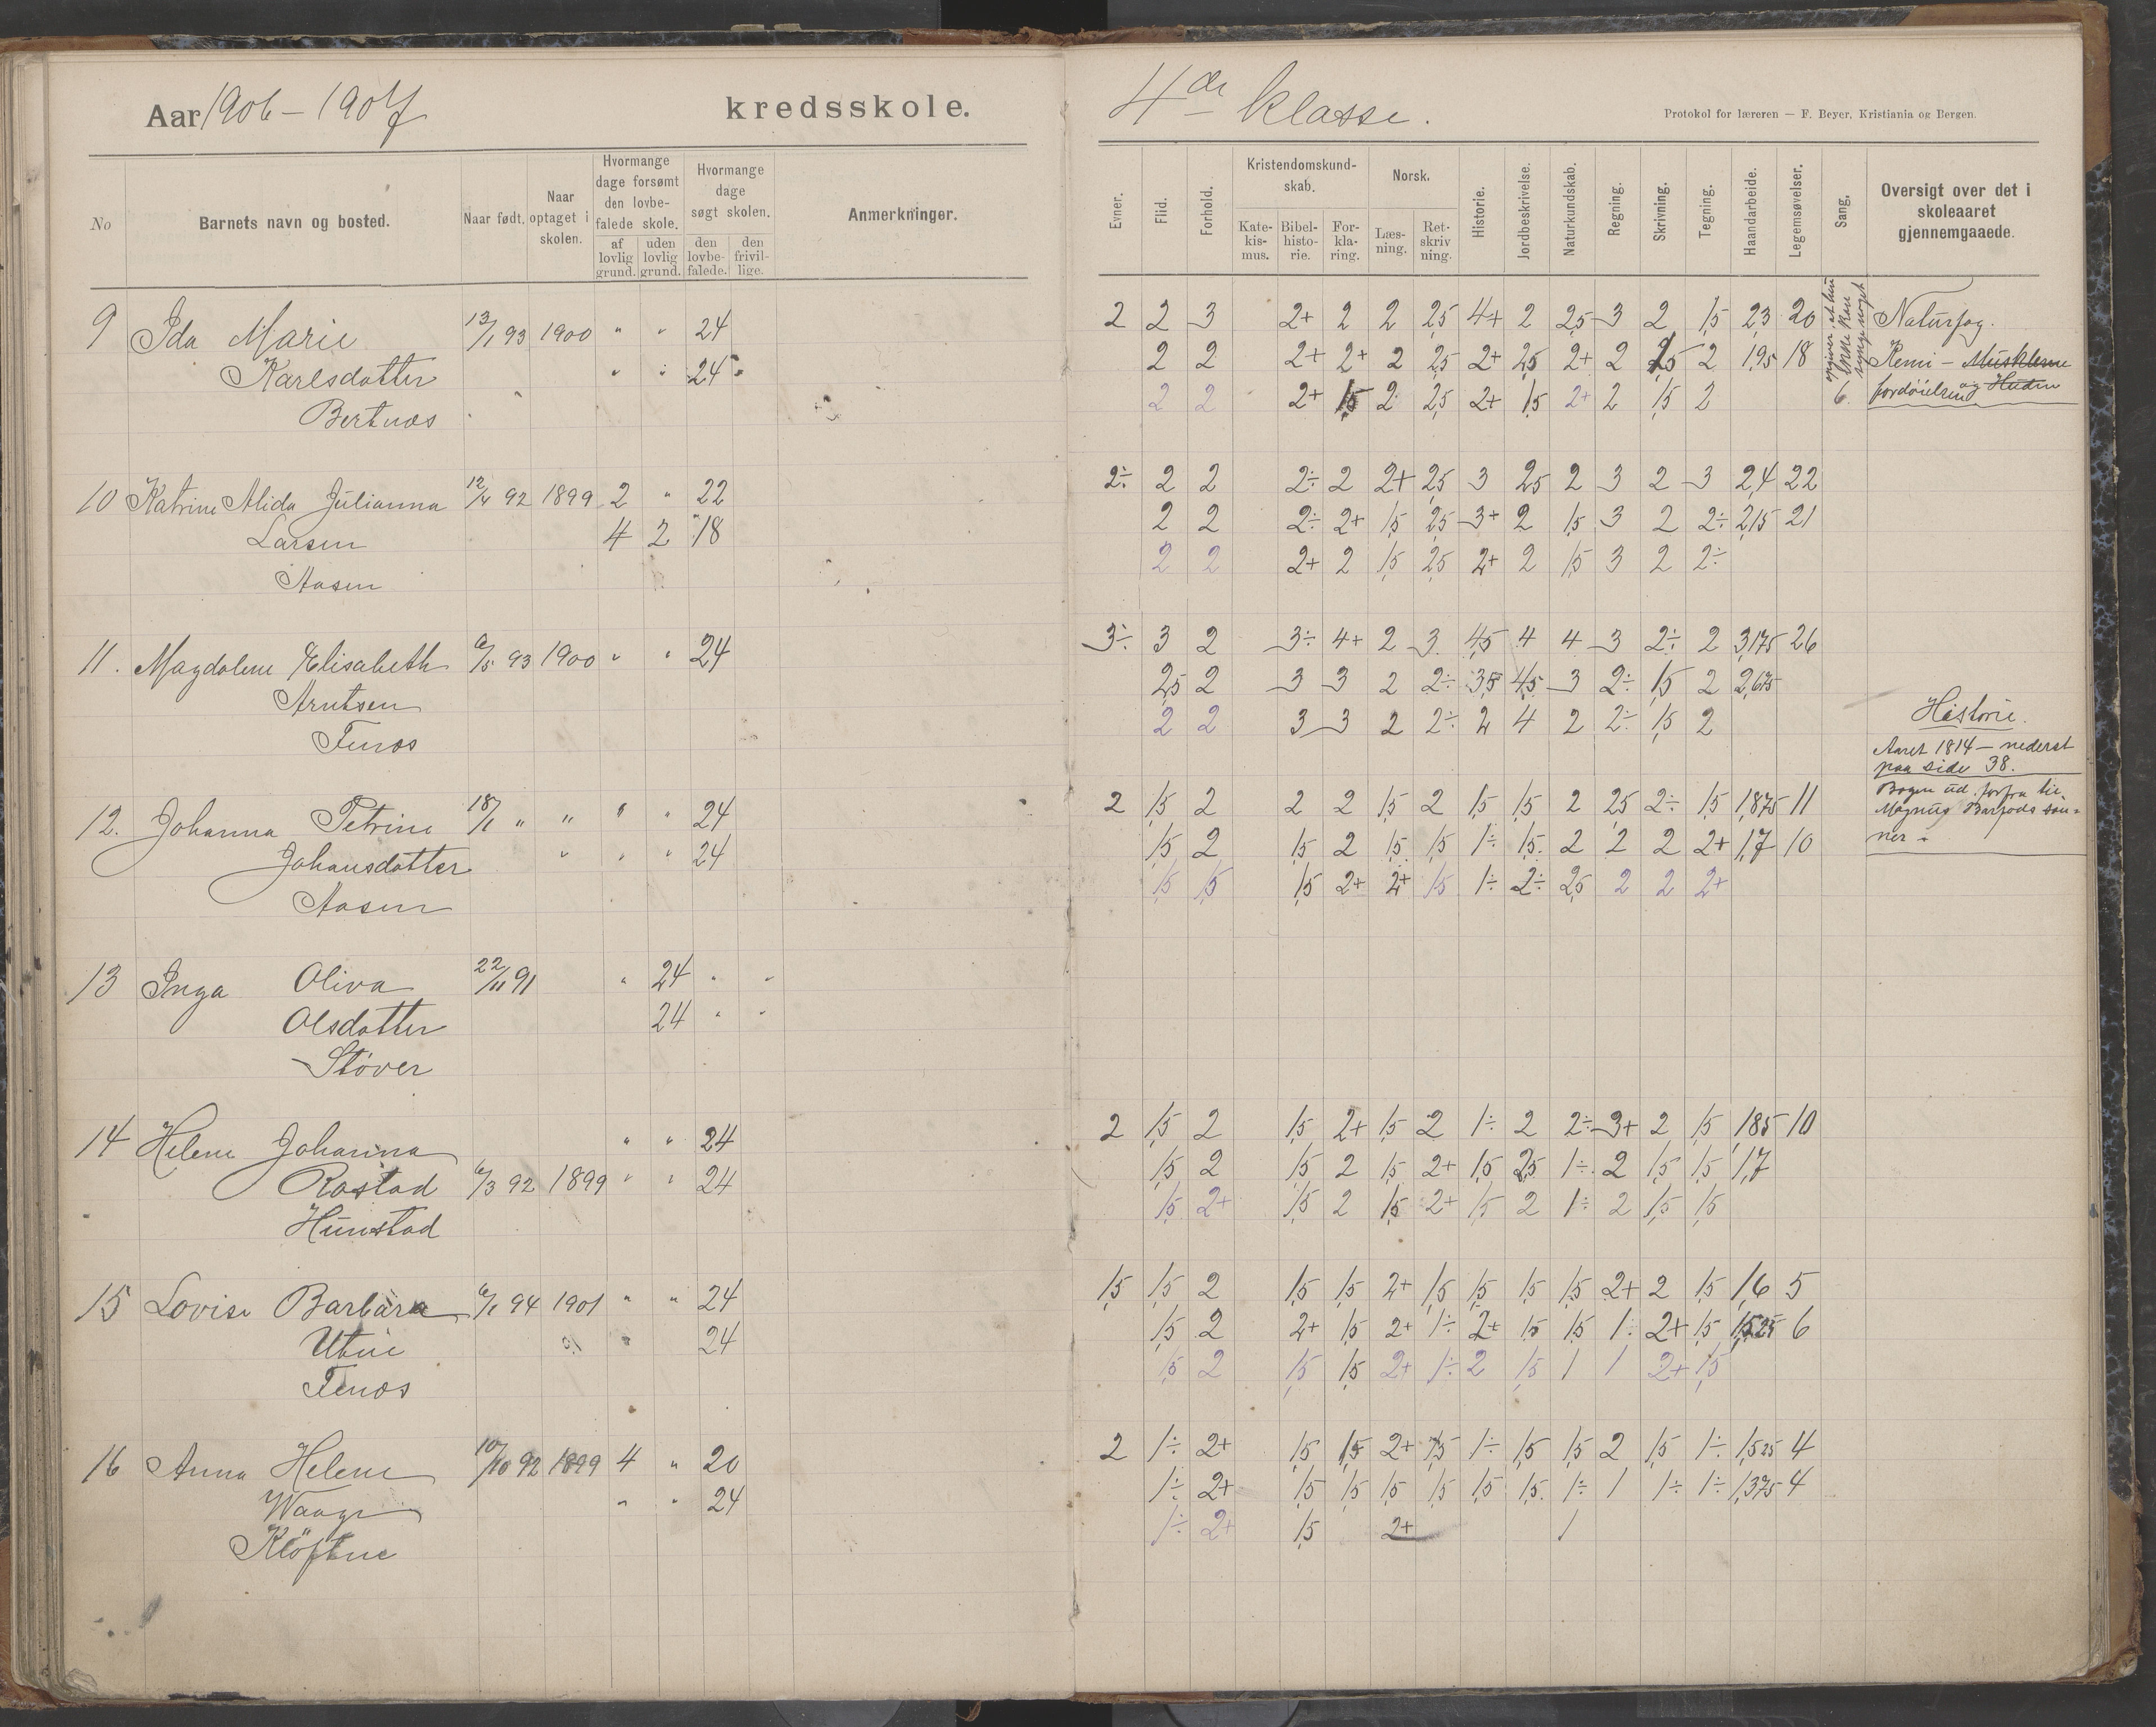 Aar 1906 - 1907 kredsskole.
No Barnets navn og bosted. Naar født. Naar optaget i skolen. Hvormange dage forsømt den lovbefalede skole. af lovlig grund. uden lovlig grund. Hvormange dage søgt skolen. den lovbefalede. den frivillige. Anmerkninger.
9 Ida Marie 13/1 93 1900 " " 24
Karlsdatter " " 24 "
Bertnæs
10 Katrine Alida Julianna 12/4 92 1899 2 " 22
Larsen 4 2 18
Aasen
11. Magdalene Elisabeth 6/5 93 1900 " " 24
Arntsen
Fenæs
12. Johanna Petrine 18/1 " " " " 24
Johansdatter " " " 24
Aasen
13 Inga Oliva 22/11 91 " 24 " "
Olsdatter 24 " "
Støver
14 Helene Johanna " " 24
Røstad 6/3 92 1899 " " 24
Hunstad
15 Lovise Barbara 6/1 94 1901 " " 24
Utne " 24
Fenæs
16 Anna Helene 10/10 92 1899 4 " 20
Waage " " 24
Kløftne
4de klasse.
Protokol for læreren — F. Beyer, Kristiania og Bergen.
Evner. Flid. Forhold. Kristendomskundskab. Katekismus. Bibelhistorie. Forklaring. Norsk. Læsning. Retskrivning. Historie. Jordbeskrivelse. Naturkundskab. Regning. Skrivning. Tegning. Haandarbeide. Legemsøvelser. Sang. Oversigt over det i skoleaaret gjennemgaaede.
2 2 3 2+ 2 2 2,5 4+ 2 2,5 3 2 1,5 2,3 20 Naturfag.
2 2 2+ 2+ 2 2,5 2+ 2,5 2+ 2 2,5 2 1,95 18 Kemi - Musklerne
2 2 2+ 1,5 2 2,5 2+ 1,5 2+ 2 1,5 2 6. fordøielsen og Huden
opgiver, at hun ikke kan synge noget
2÷ 2 2 2÷ 2 2+ 2,5 3 2,5 2 3 2 3 2,4 22
2 2 2÷ 2+ 1,5 2,5 3+ 2 1,5 3 2 2÷ 2,15 21
2 2 2+ 2 1,5 2,5 2+ 2 1,5 3 2 2÷
3÷ 3 2 3÷ 4+ 2 3 4,5 4 4 3 2÷ 2 3,175 26
2,5 2 3 3 2 2÷ 3,5 4,5 3 2÷ 1,5 2 2,675
2 2 3 3 2 2÷ 2 4 2 2÷ 1,5 2
Historie.
Aaret 1814 - nederst
paa side 38.
Bogen ud forfra til
Magnus Barfods søn-
ner -
2 1,5 2 2 2 1,5 2 1,5 1,5 2 2,5 2÷ 1,5 1,875 11
1,5 2 1,5 2 1,5 1,5 1÷ 1,5 2 2 2 2+ 1,7 10
1,5 1,5 1,5 2+ 2+ 1,5 1÷ 2÷ 2,5 2 2 2+
2 1,5 2 1,5 2+ 1,5 2 1÷ 2 2÷ 3+ 2 1,5 1,85 10
1,5 2 1,5 2 1,5 2+ 1,5 2,5 1÷ 2 1,5 1,5 1,7
1,5 2+ 1,5 2 1,5 2+ 1,5 2 1÷ 2 1,5 1,5
1,5 1,5 2 1,5 1,5 2+ 1,5 1,5 1,5 1,5 2+ 2 1,5 1,6 5
1,5 2 2+ 1,5 2+ 1÷ 2+ 1,5 1,5 1÷ 2+ 1,5 1,525 6
1,5 2 1,5 1,5 2+ 1÷ 2 1,5 1 1 2+ 1,5
2 1÷ 2+ 1,5 1,5 2+ 1,5 1÷ 1,5 1,5 2 1,5 1÷ 1,525 4
1÷ 2+ 1,5 1,5 1,5 1,5 1,5 1,5 1÷ 1 1÷ 1÷ 1,375 4
1÷ 2+ 1,5 2+ 1